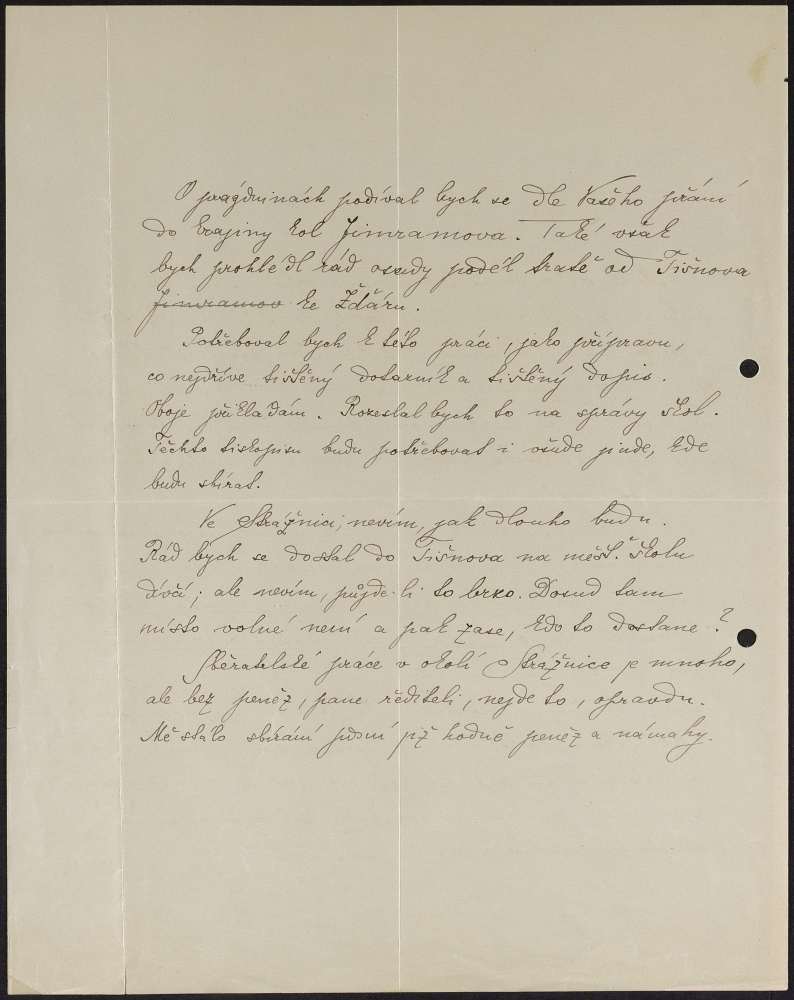 O prázdninách podíval bych se dle Vašeho přání
do krajiny kol Jimramova. Také však
bych prohlédl rád osady podél tratě od Tišnova
Jimramov ke Žďáru.
Potřeboval bych k této práci, jako přípravu,
co nejdříve tištěný dotazník a tištěný dopis.
Oboje přikládám. Rozeslal bych to na správy škol.
Těchto tiskopisu budu potřebovat i všude jinde, kde
budu sbírat.
Ve Strážnici, nevím, jak dlouho budu.
Rád bych se dostal do Tišnova na měšť. školu
dívčí; ale nevím, půjde-li to brzo. Dosud tam
místo volné není a pak zase, kdo to dostane?
Sběratelské práce v okolí Strážnice je mnoho,
ale bez peněz, pane řediteli, nejde to, opravdu.
Mě stálo sbírání písní již hodně peněz a námahy.